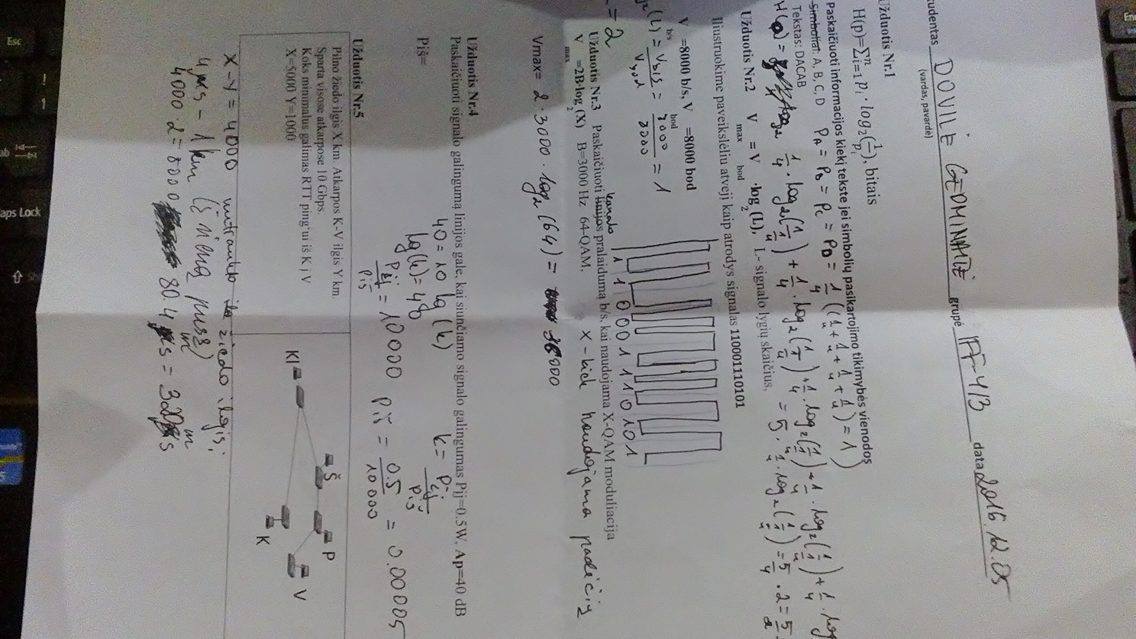 tudentas DOVILĖ GEDMINAITĖ grupė IFF-4/3 data 2016.12.05
(vardas, pavardė)
Užduotis Nr.1
H(p)=∑ⁿᵢ₌₁ pᵢ · log₂(1/pᵢ), bitais
Paskaičiuoti informacijos kiekį tekste jei simbolių pasikartojimo tikimybės vienodos
Simboliai: A, B, C, D P_A = P_B = P_C = P_D = 1/4 (1/4 + 1/4 + 1/4 + 1/4 = 1)
Tekstas: DACAB
1/4 · log₂(1/(1/4)) + 1/4 · log₂(1/(1/4)) + 1/4 · log₂(1/(1/4)) + 1/4 · log₂(1/(1/4)) + 1/4 · log
= 5 · 1/4 · log₂(1/(1/4)) = 5/4 · 2 = 5/2
Užduotis Nr.2 V max = V bod ·log₂(L), L- signalo lygių skaičius,
Iliustruokime paveikslėliu atvejį kaip atrodys signalas 110001110101
V b/s =8000 b/s, V bod =8000 bod
(L) = V b/s / V bod = 8000/8000 = 1
= 2
1 1 0 0 0 1 1 1 0 1 0 1
kanalo
Užduotis Nr.3 Paskaičiuoti linijos pralaidumą b/s, kai naudojama X-QAM moduliacija
V max =2B·log₂(X) B=3000 Hz 64-QAM. X - kiek naudojama padėčių
Vmax= 2·3000·log₂(64) = 36000
Užduotis Nr.4
Paskaičiuoti signalo galingumą linijos gale, kai siunčiamo signalo galingumas Pįj=0.5W, Ap=40 dB
40 = 10 lg(k) k = Pįj/Piš
Piš= lg(k) = 40
Pįj/Piš = 10000 Piš = 0.5/10000 = 0.00005
Užduotis Nr.5
Pilno žiedo ilgis X km. Atkarpos K-V ilgis Y km.
Sparta visose atkarpose 10 Gbps.
Koks minimalus galimas RTT ping'ui iš K į V
X=5000 Y=1000
Š P
KI V
K
X-Y = 4000 žiedo ilgis;
1 km (į vieną pusę)
4000·2 = 8000 80·4 ms = 320 ms